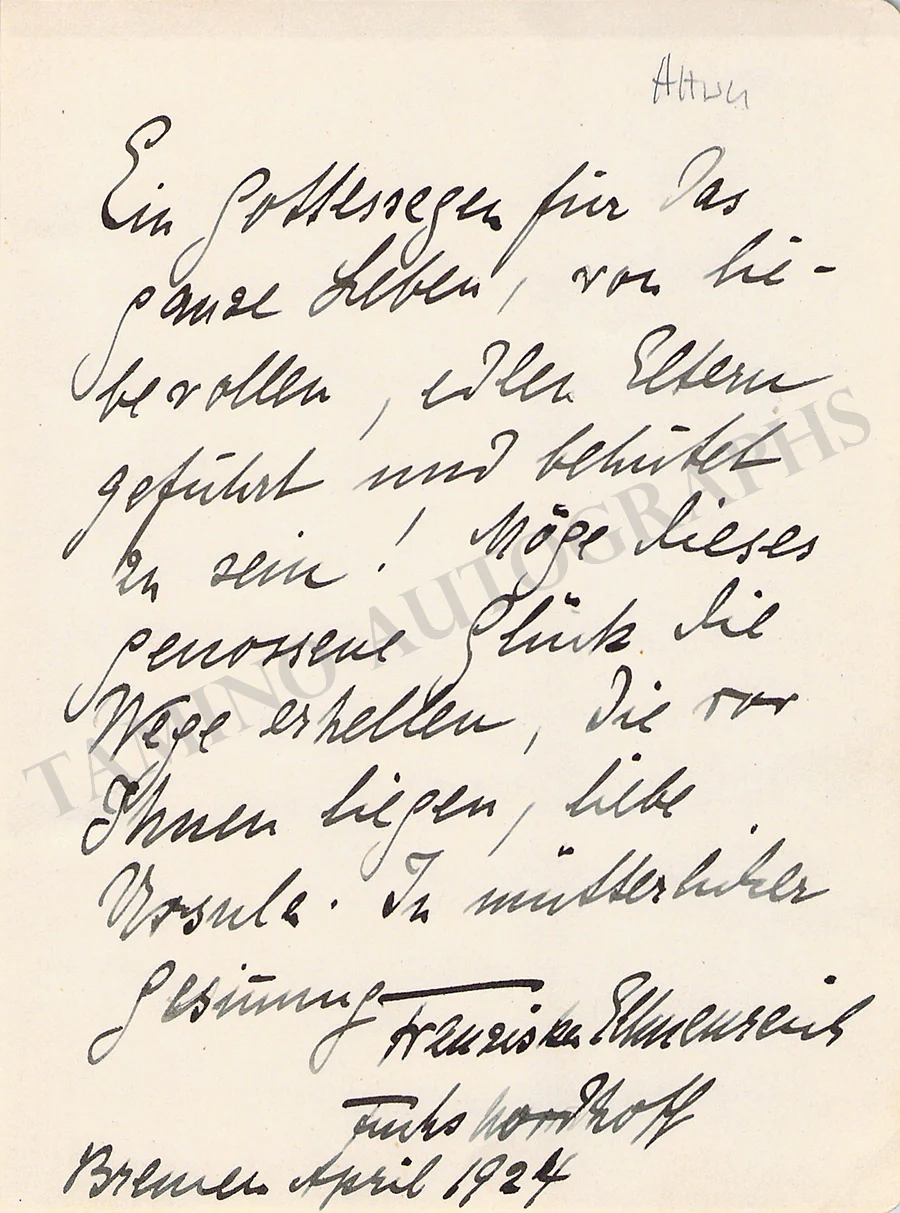 Ein Gottessegen für das
ganze Leben, von lie-
bevollen, edlen Eltern
geführt und behütet
zu sein! Möge dieses
genossene Glück die
Wege erhellen, die vor
Ihnen liegen, liebe
Ursula. In mütterlicher
Gesinnung
Franziska Ellmenreich
Fuchs Nordhoff
Bremen April 1924
TAMINO AUTOGRAPHS